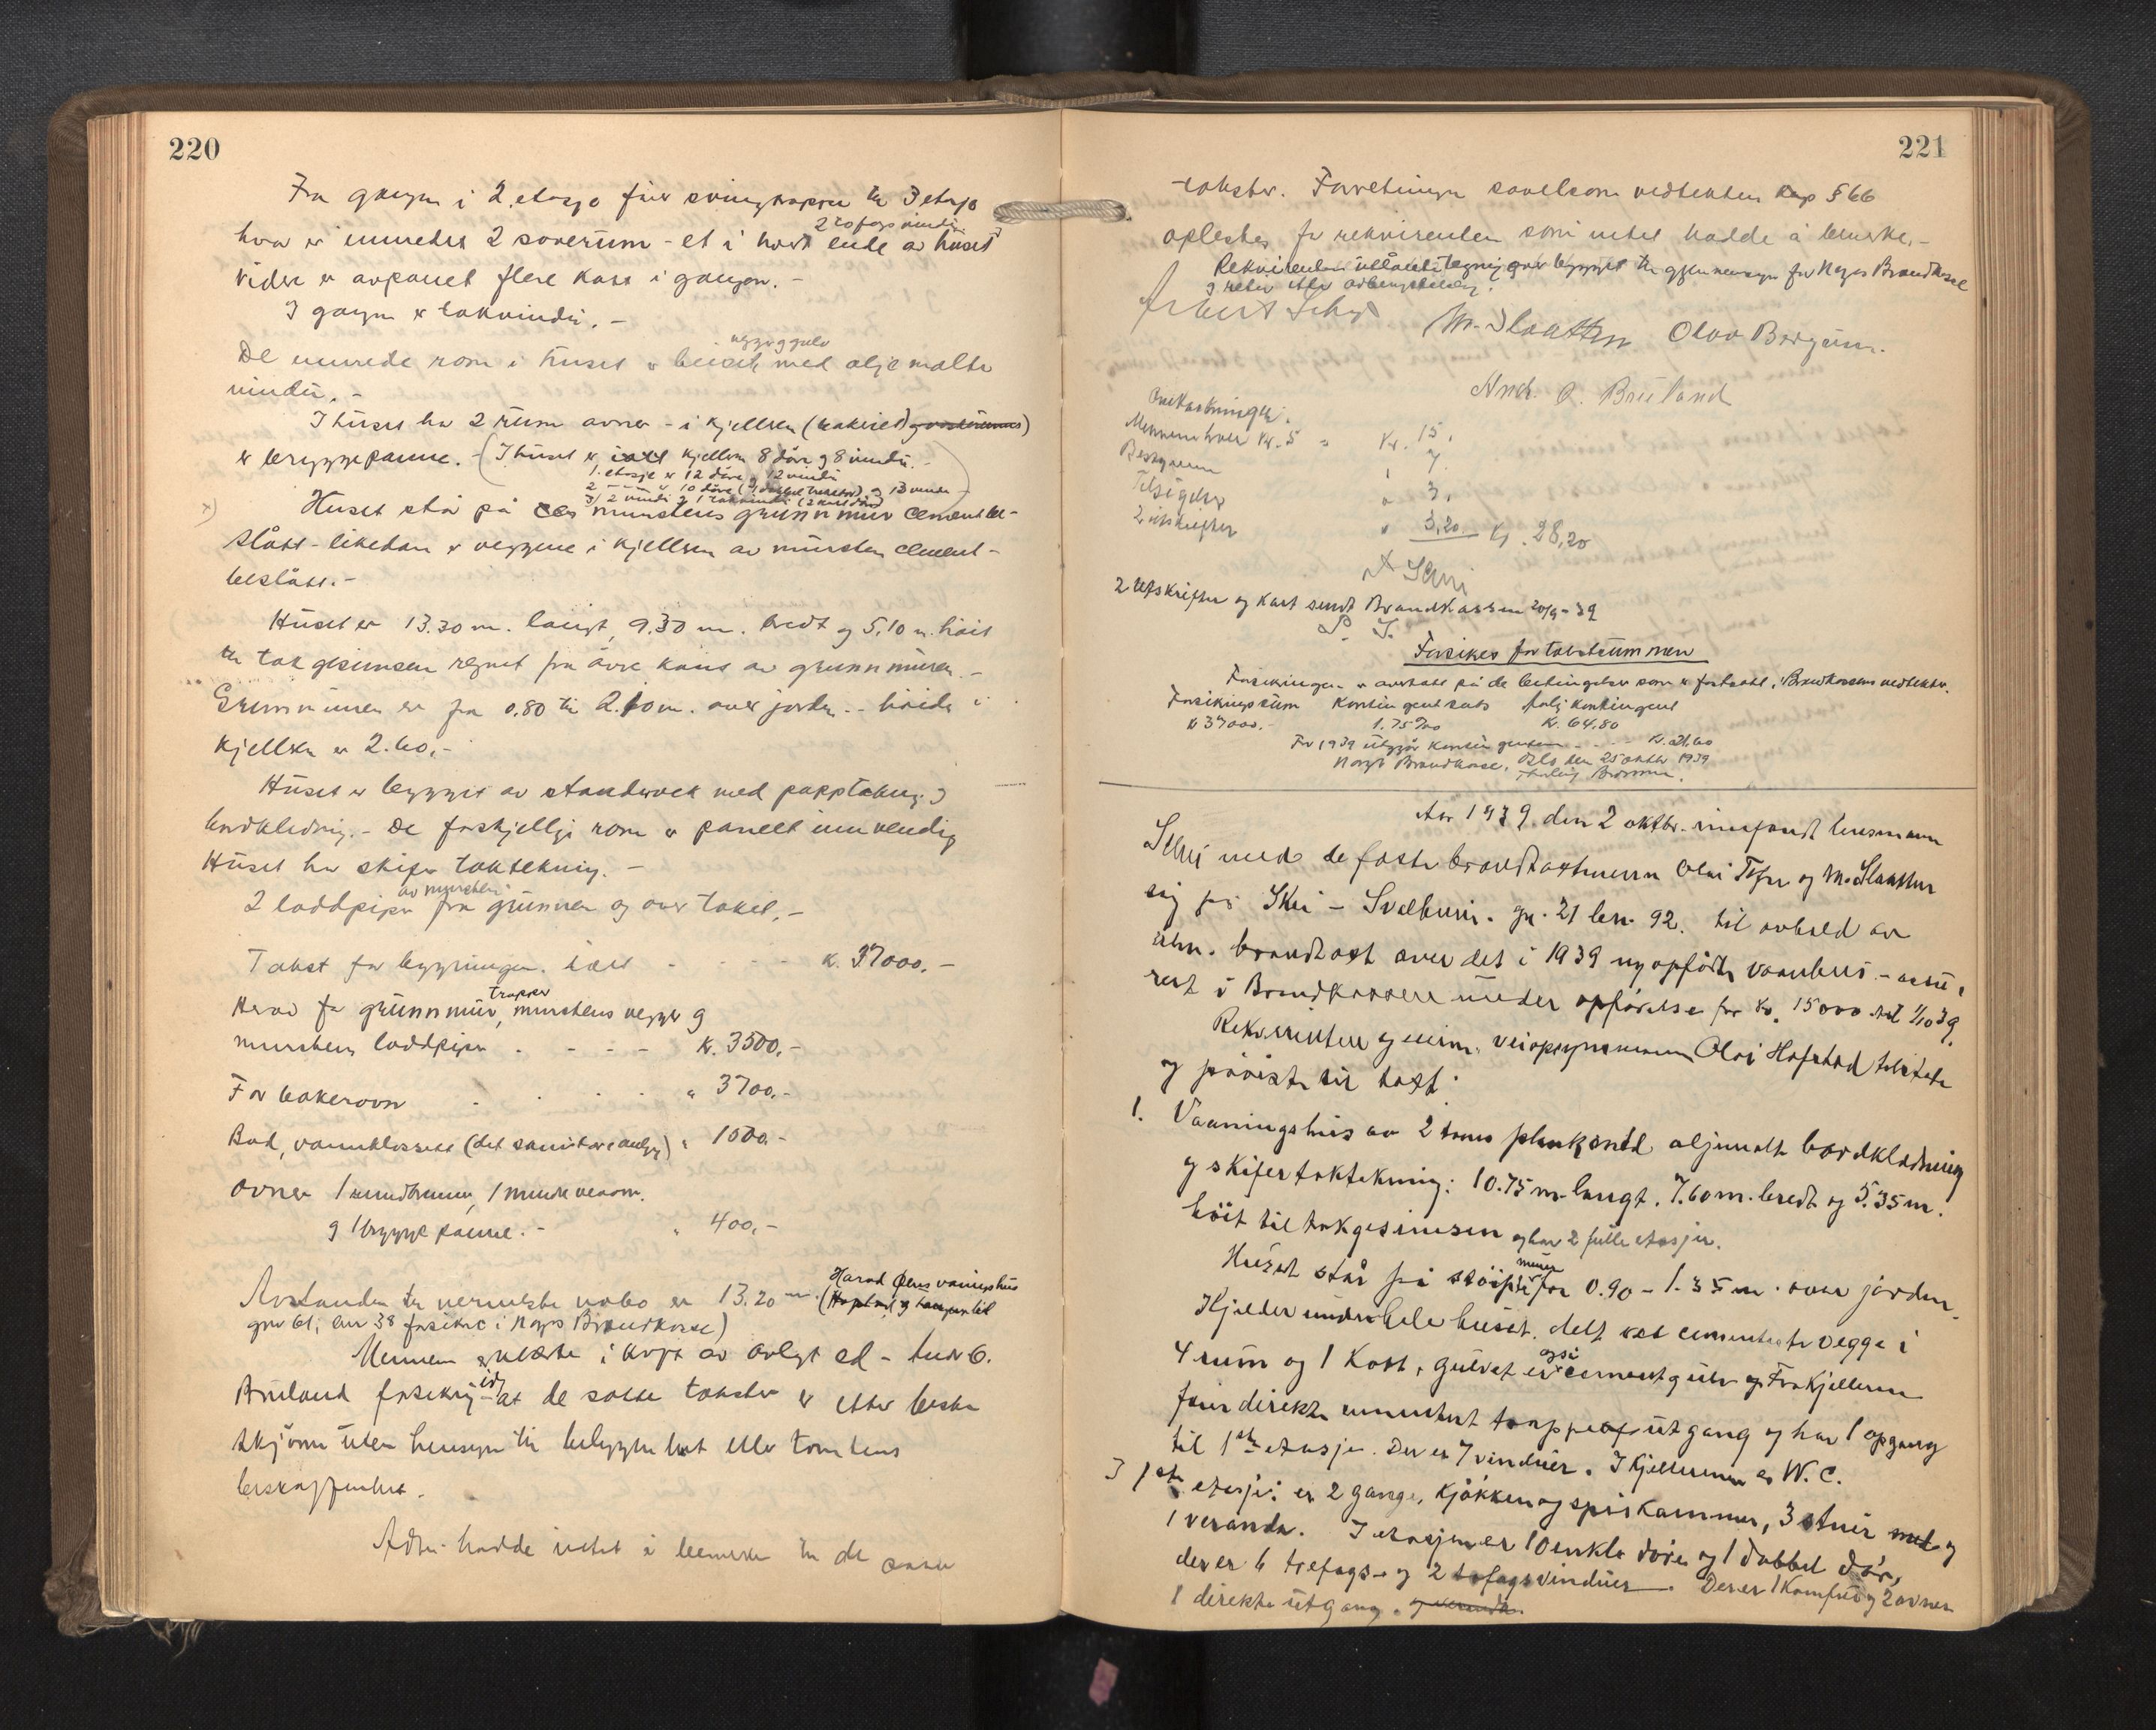 220
Fra gangen i 2. etasje före svingtrappen til 3 etasje
2 tofags vinduer
hvor er innredet 2 soverum - et i hver ende av huset
videre er avpanet flere kott i gangen. -
I gangen er takvindu. -
vegger og gulv
De innrede rom i huset er beiset med oljemalte
vindu. -
I huset har 2 rum ovner - i kjelleren (bakeriet)
er bryggepanne. - (I huset er i alt kjelleren 8 döre og 8 vindu. -
1. etasje er 12 döre og 12 vindu
2 - - er 10 döre og 13 vindu -
3) 2 vindu og 1 takvindu (2 kott döre)
x) Huset står på murstens grunnmur cementbe-
slått - likedan er veggene i kjelleren av mursten cement-
beslått. -
Huset er 13.30 m. langt, 9.30 m. bredt og 5,10 m. höit
til takgesimsen regnet fra övre kant av grunnmuren. -
Grunnmuren er fra 0.80 til 2.10 m. over jorden. - höiden i
kjelleren er 2.60. -
Huset er bygget av standverk med papptekning og
bordkledning. - De forskjellige rom er panelt innvendig
Huset har skifer taktekning. -
av mursten
2 loddpiper fra grunnen og over taket. -
Takst for bygningen i alt - - - - k. 37000. -
trapper
Herav for grunnmur, murstens vegger og
murstens loddpiper . - - - k. 3500, -
For bakerovn - . . . . " 3700, -
Bad, vannklossett (det sanitære anlegg) " 1500. -
ovner 1 rundbrenner, 1
og 1 bryggepanne. - " 400, -
Avstanden til nermeste nabo er 13.20 m. (Harad Öens vaningshus
gnr 61, bnr 38 forsikret i Norges Brandkasse)
Mennene erklærte i kraft av avlagt ed - Andr. O.
Brueland forsikring - at de satte takster er etter beste
skjönn uten hensyn til bebyggelsens eller tomtens
beskaffenhet.
Adm. hadde intet å bemerke til de satte
221
takster. Forretningen såvelsom vedtekten kap § 66
oplestes for rekvirenten som intet hadde å bemerke. -
Rekvirenten tegning over bygget til gjennemsyn for Norges Brandkasse
og retur etter avbenyttelsen.
M. Slaatten Olav Bergum.
Andr. O. Brueland
Omkostninger.
Mennene hver kr. 5 " Kr. 15,
7
Tilsigelser " 3,
2 utskrifter " 3,20 Kr. 28,20
A Schei
2 Utskrifter og kart sendt Brandkassen 20/9 - 39
S. S.
Forsikres for takstsummen
Forsikringen er avsluttet på de betingelser som er fastsatt i Brandkassens vedtekter.
Forsikringssum Kontingentsats Årlig kontingent
kr 37000. - 1.75 ‰ kr. 64.80
For 1939 utgjör kontingenten - - - kr. 21.60
Norges Brandkasse, Oslo den 25 oktbr 1939
Aar 1939 den 2 oktbr. innfandt lensmann
Schei med de faste brandtaxtmenn Olai Tefre og M. Slaatten
sig på Skei - Svelbuvi. gn. 21 bn. 92. til avhold av
alm. brandtaxt over det i 1939 nyopförte vaanhus - assu-
rert i Brandkassen under opförelse for kr. 15000 til 1/10 39.
Rekvirenten og eieren, veiopsynsmann Olai Hofstad tilstede
og påviste til taxt:
1. Vaaningshus av 2 toms plank med oljemalt bordkledning
og skifertaktekning: 10.75 m. langt. 7.60 m. bredt og 5.35 m.
höit til takgesimsen og har 2 fulle etasjer.
mur
Huset står på stöpt fra 0.90 - 1.35 m. over jorden.
Kjelder under hele huset. delt ved cementerte vegge i
også
4 rum og 1 Kott, gulvet er cementgulv og Fra kjelleren
förer direkte cementert trappeutgang og har 1 opgang
til 1ste etasje. Der er 7 vinduer. I Kjelleren er W. C.
I 1ste etasje: er 2 gange, kjökken og spiskammer, 3 stuer med og
1 veranda. I etasjen er 10 enkle döre og 1 dobbel dör,
der er 6 trefags- og 2 tofagsvinduer. Der er 1 Komfur og 2 ovner
1 direkte utgang. og veranda.